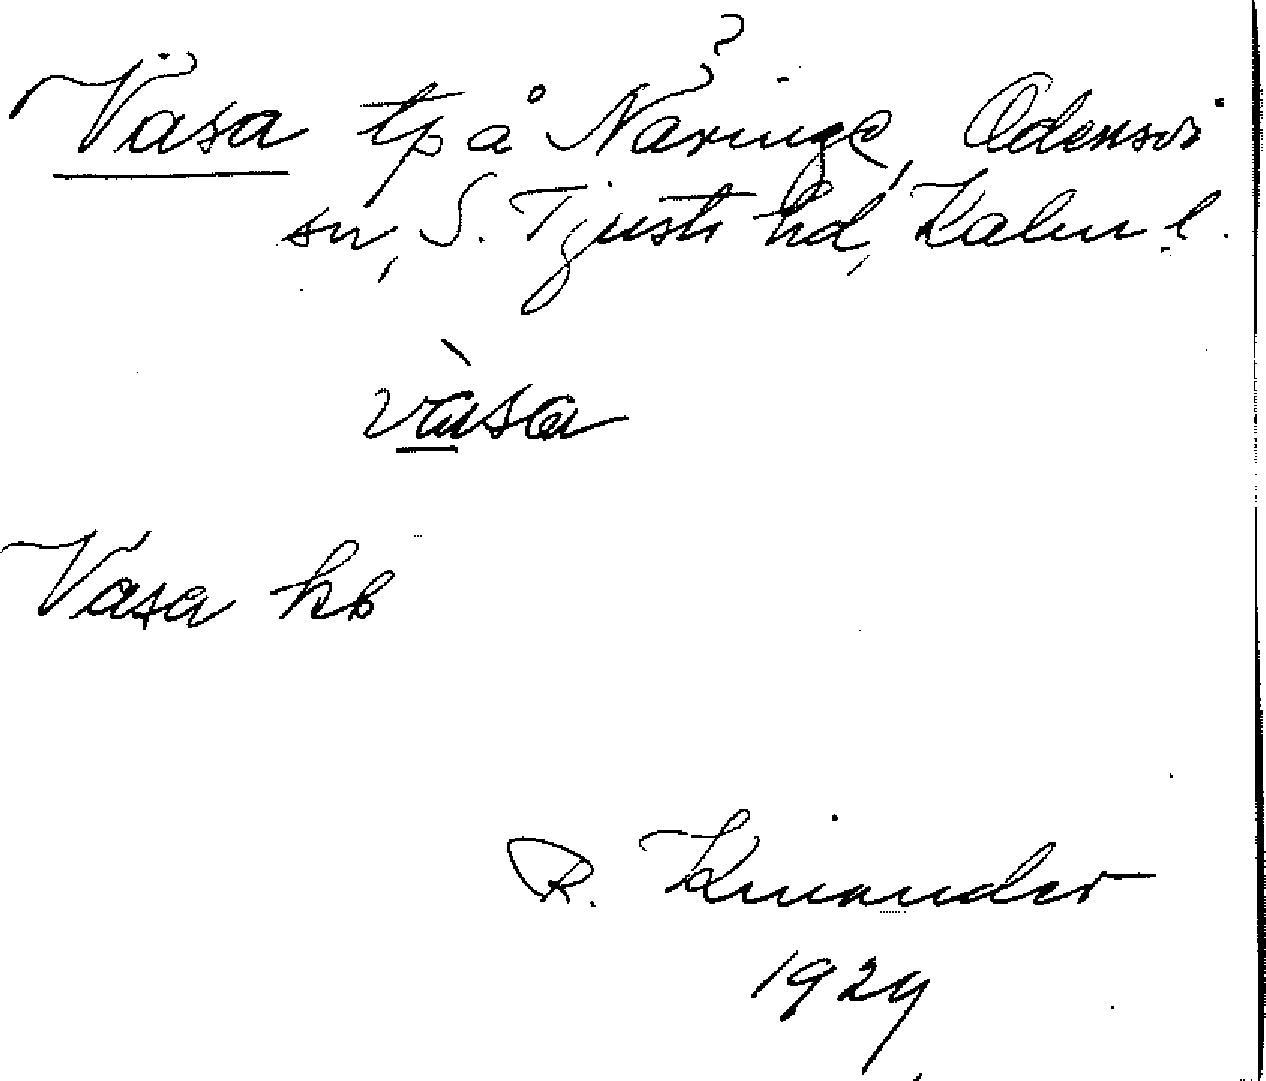 ?
Vasa tp å Näringe, Odensvi
sn, S. Tjusts hd, Kalm. l.
vàsa
Vasa kb
R. Kinander
1929